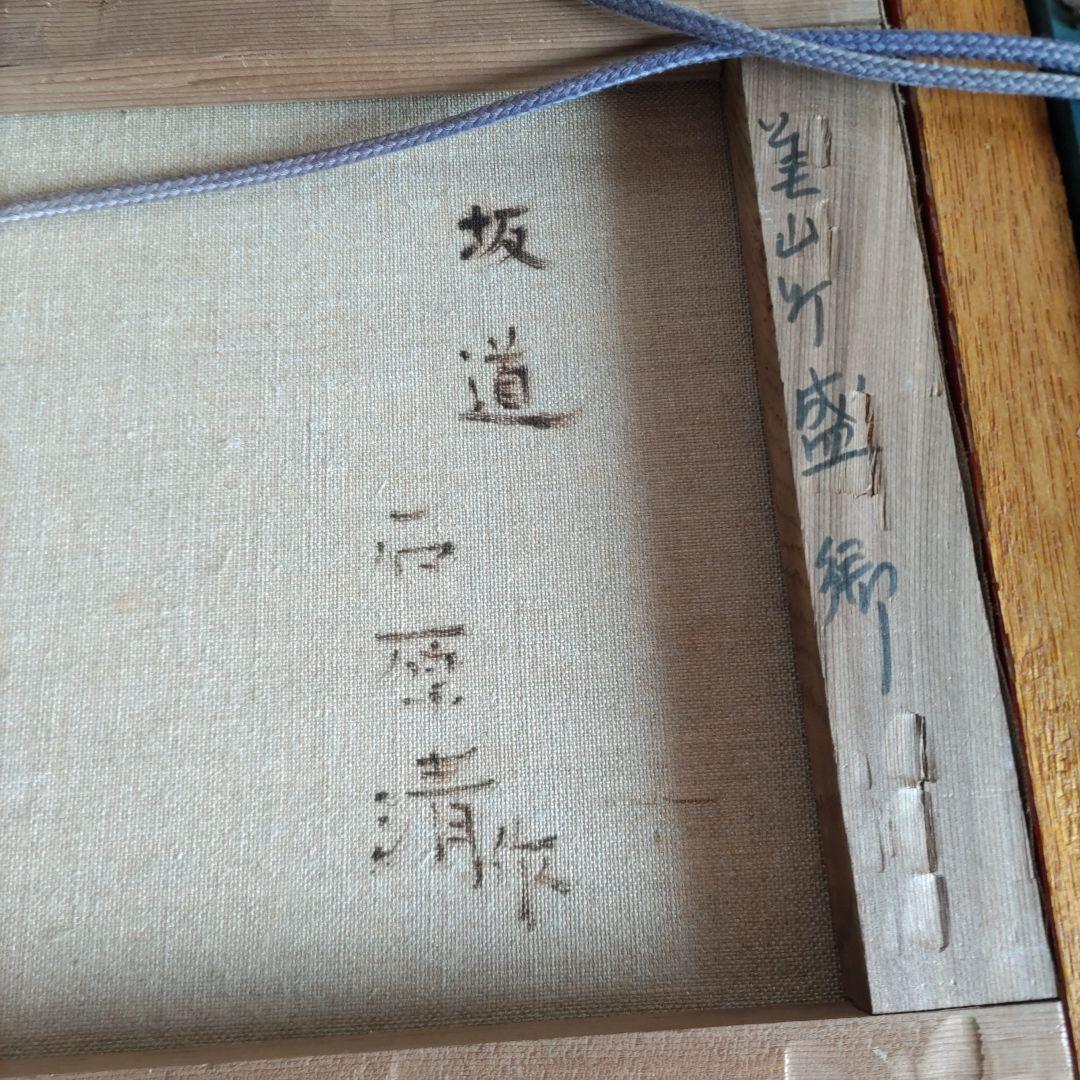 坂道
石原清作
山竹盛郷